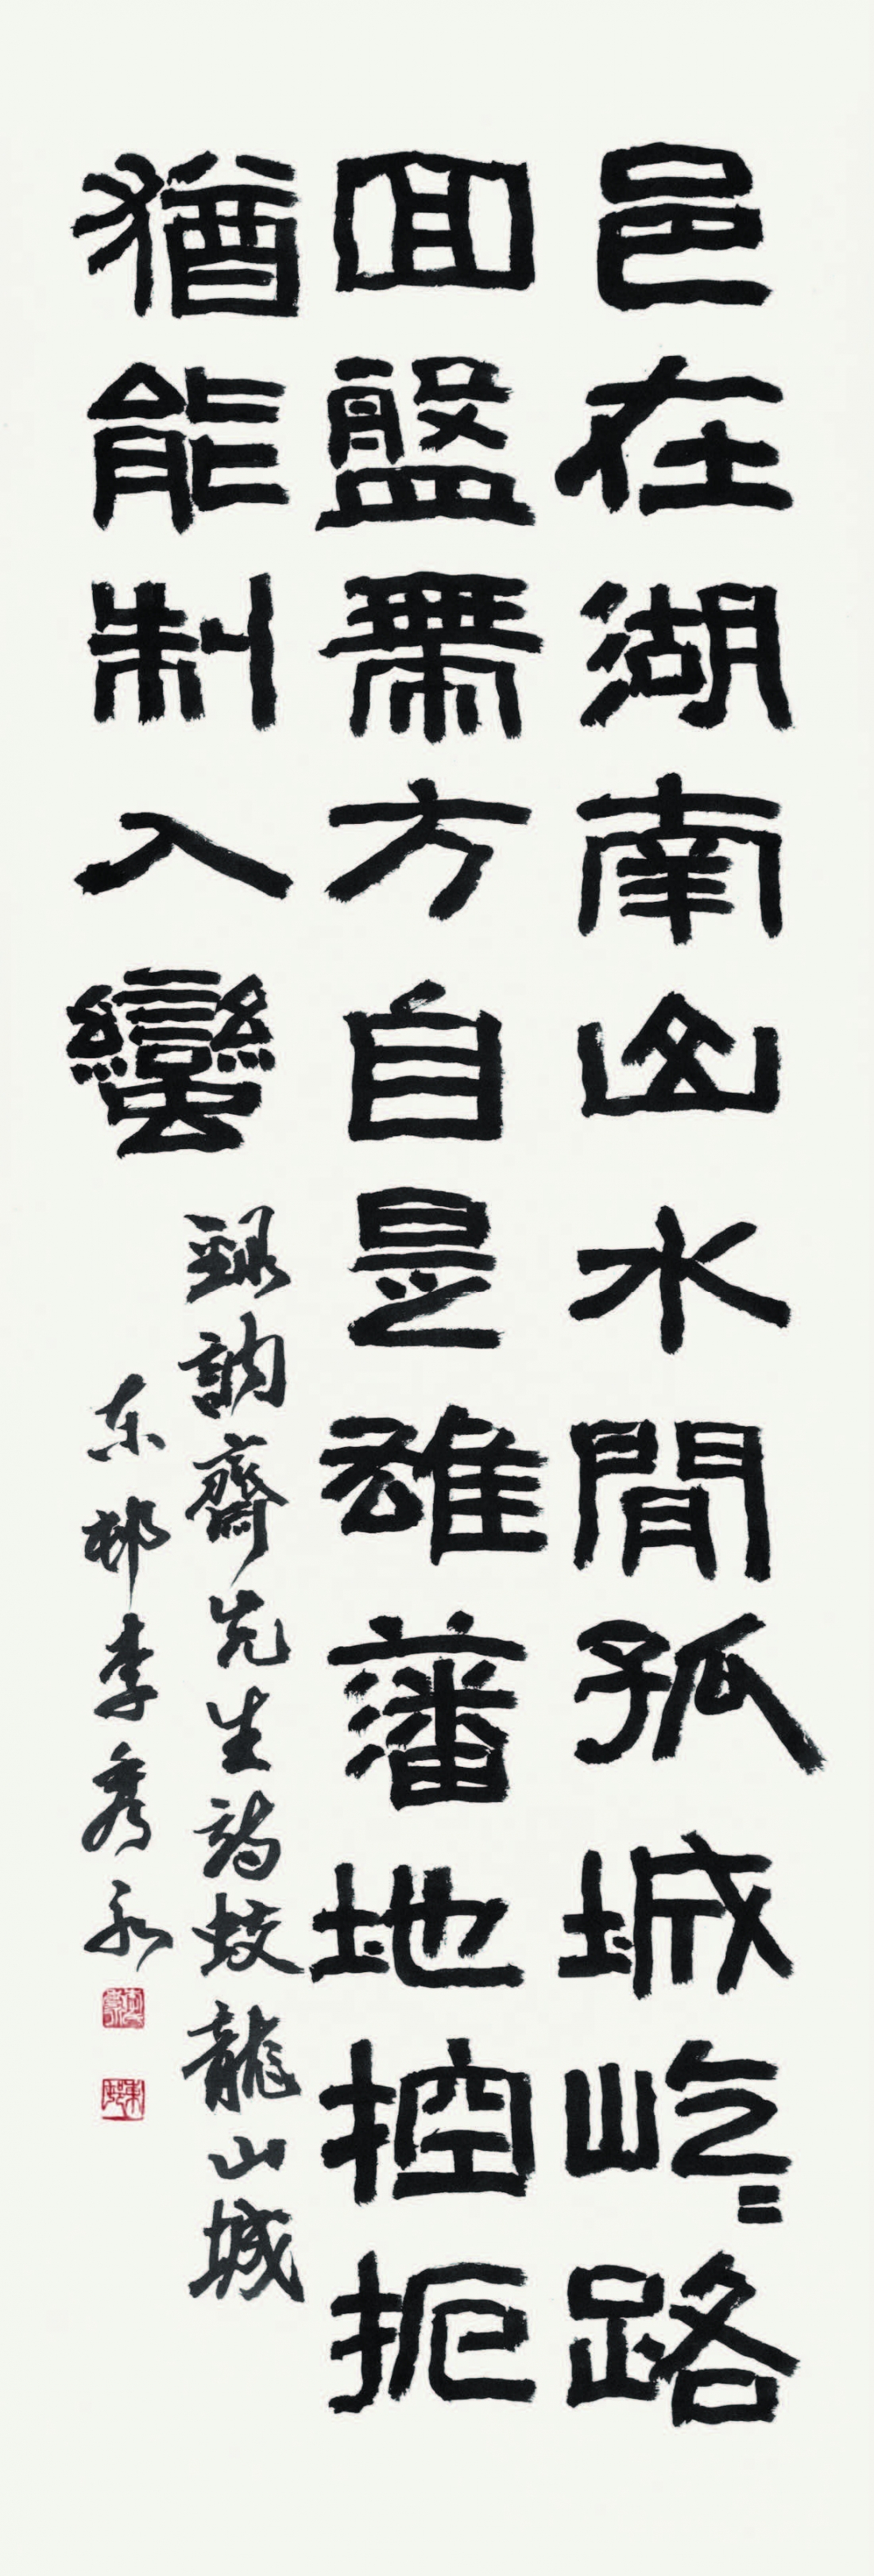 邑在湖南山水間孤城屹〻路
回盤帶方自是雄藩地控扼
猶能制入蠻
録訥齋先生詩蛟龍山城
东邨李秀永